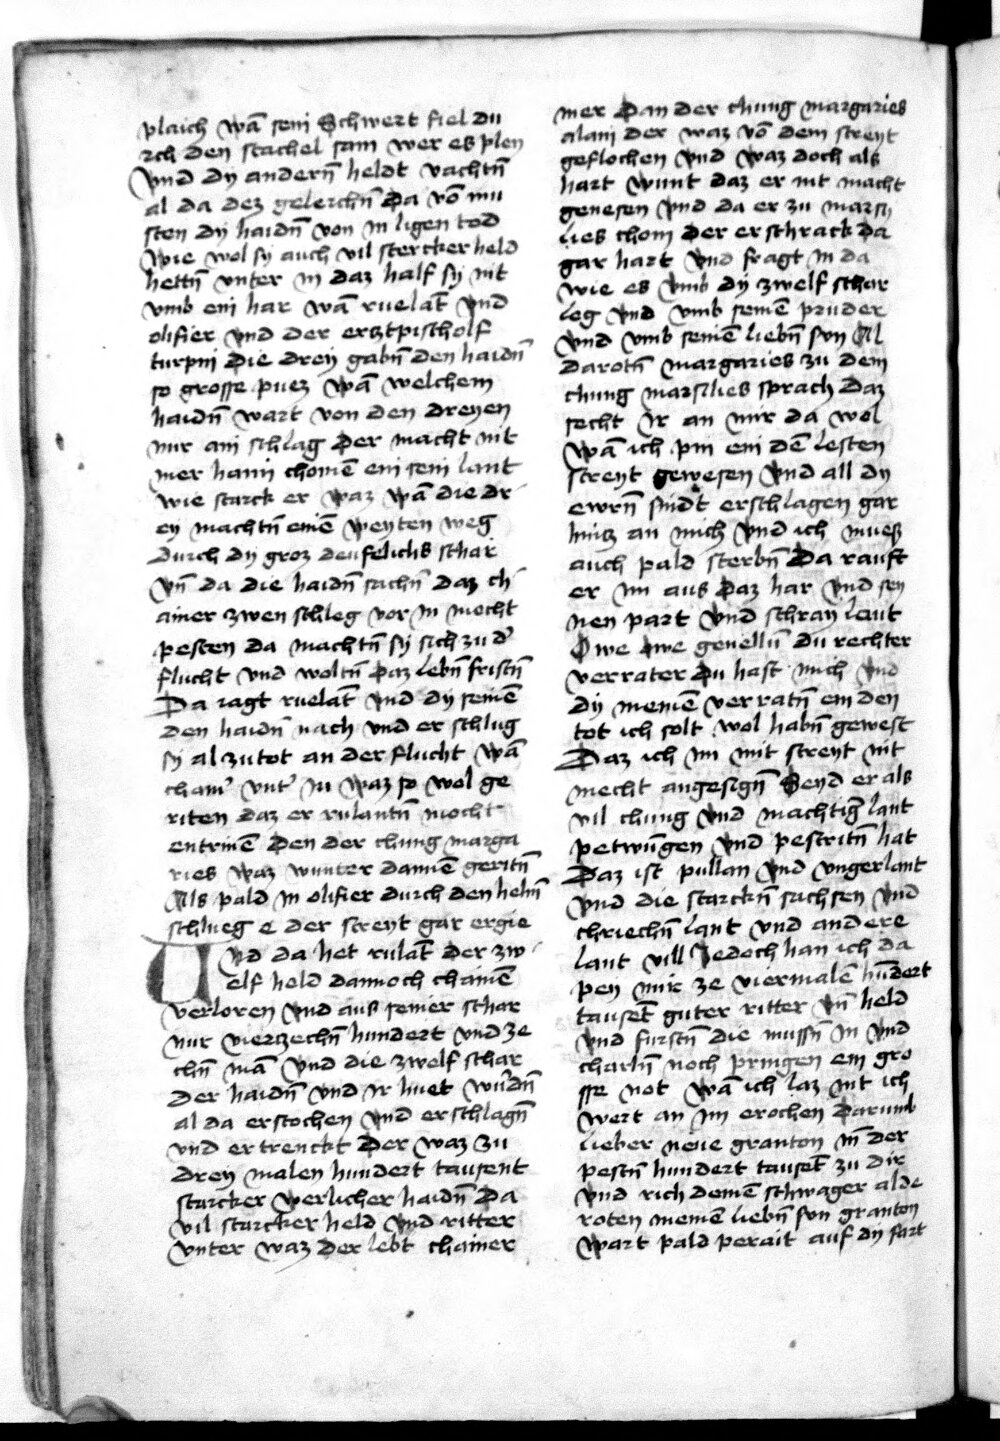 plaich wā sein Schwert fiel du
rch den stachel sam wer es plen
vnd dy andern̄ heldt vachtn̄
al da dez gelerchn̄ Da vō mu
sten dy haidn̄ von in ligen tod
Wie wol sy auch vil stercker held
hettn̄ vnter in daz half sy nit
vmb ein har wā ruelāt vnd
olifier vnd der ercztpischolf
turpin die dreӱ gabn̄ den haidn̄
so grosse puez wā welchem
haidn̄ wart von den dreyen
nur ain schlag der macht nit
mer haim chomē ein sein lant
wie starck er waz wā die dr
ey machtn̄ einē weyten weg
durch dy groz deufelichs schar
vn̄ da die haidn̄ sachn̄ daz ch
ainer zwen schleg vor in mocht
pesten da machtn̄ sy sich zu d'
flucht vnd woltn̄ daz lebn̄ fristn̄
Da iagt ruelāt vnd dy seinē
den haidn̄ nach vnd er schlug
sy al zu tot an der flucht wā
cham' vnt' in waz so wol ge
riten daz er rulantn̄ mocht
entrinē Den der chung marga
ries waz wunter dannē geritn̄
Als pald in olifier durch den helm̄
schlueg e der streyt gar ergie
Vnd da het rulāt der zw
elf held dannoch chainē
verloren vnd aus seiner schar
nur vierczechn̄ hundert vnd ze
chn̄ mā vnd die zwelf schar
der haidn̄ vnd ir huet wurdn̄
al da erstochen vnd erschlagn̄
vnd ertrenckt Der waz zu
dreӱ malen hundert tausent
starcker werlicher haidn̄ Da
vil starcker held vnd ritter
vnter waz der lebt chainer
mer Dan der chung margaries
alain der waz vō dem streyt
geflochen vnd waz doch als
hart wunt daz er nit macht
genesen vnd da er zu marsi
lies chom der erschrack da
gar hart vnd fragt in da
wie es vmb dy zwelf schar
leg vnd vmb seinē pruder
vnd vmb seinē liebn̄ sun Al
darotn̄ margaries zu dem
chung marsilies sprach Daz
secht ir an mir da wol
wā ich pin ein dē lesten
streyt gewesen vnd all dy
ewrn̄ sindt erschlagen gar
hincz an mich vnd ich muesz
auch pald sterbn̄ Da rauft
er im aus daz har vnd sey
nen part vnd schray laut
Owe owe genellū du rechter
verrater du hast mich vnd
dy meinē verratn̄ ein den
tot ich solt wol habn̄ gewest
Daz ich im mit streyt nit
mecht angesign̄ Seyd er als
vil chung vnd machtiḡ lant
petwūgen vnd pestritn̄ hat
Daz ist pullan vnd vngerlant
vnd die starckn̄ sachsen vnd
chriechn̄ lant vnd andere
lant vill Jedoch han ich da
pey mir ze viermale hūdert
tausēt guter ritter vn̄ held
vnd furstn̄ die mussn̄ in vnd
charln̄ noch pringen ein gro
sse not wā ich laz nit ich
wert an im erochen Darumb
lieber neue granton nī der
pestn̄ hundert tausēt zu dir
vnd rich deinē schwager alde
roten meinē liebn̄ sun granton
wart pald perait auf dy fart